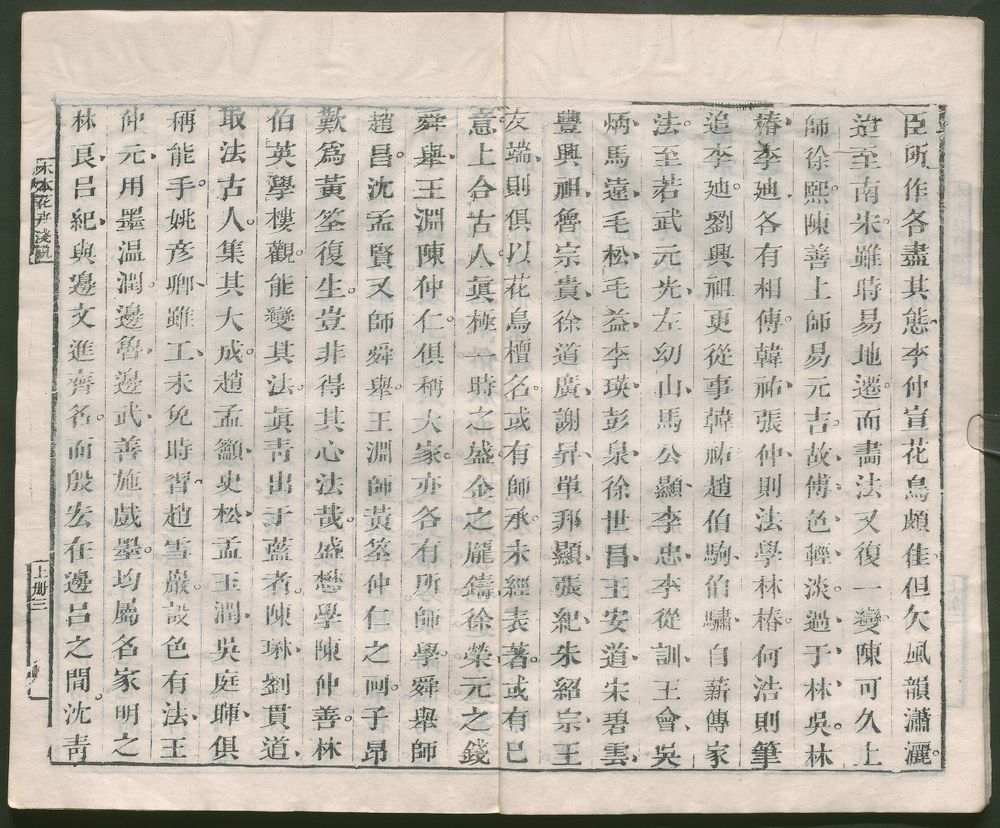 臣所作各盡其態李仲宣花鳥頗佳但欠風韻瀟灑。
迨至南宋。雖時易地遷。而畵法又復一變陳可久上
師徐熙。陳善上師易元吉。故傅色輕淡。過于林吳。林
椿、李廸各有相傳。韓祐、張仲則法學林椿。何浩則筆
追李廸。劉興祖更從事韓祐趙伯駒、伯驌自薪傳家
法。至若武元光、左幼山、馬公顯、李忠、李從訓、王會、吳
炳、馬遠、毛松、毛益、李瑛、彭杲、徐世昌、王安道、宋碧雲、
豐興祖、魯宗貴、徐道廣、謝昇、單邦顯、張紀、朱紹宗、王
友端、則俱以花鳥檀名。或有師承未經表著。或有已
意上合古人。眞極一時之盛。金之龐鑄徐榮、元之錢
舜舉、王淵陳仲仁。俱稱大家。亦各有所師學。舜舉師
趙昌。沈孟賢又師舜舉。王淵師黃筌仲仁之画。子昂
歎爲黃筌復生。豈非得其心法哉。盛懋學陳仲善。林
伯英學樓觀。能變其法。眞靑出于藍者。陳琳、劉貫道、
取法古人。集其大成。趙孟籲、史松、孟玉潤、吳庭暉、俱
稱能手。姚彦卿、雖工、未免時習。趙雪巖。設色有法、王
仲元用墨温潤。邊魯、邊武、善施戲墨。均屬名家明之
林良、呂紀、與邊文進齊名。而殷宏在邊呂之間。沈靑
木本花卉淺說
上册三